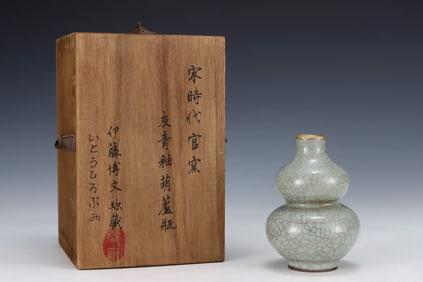 宋時代官窯
灰青釉葫蘆瓶
伊藤博文珍藏
いとうひろぶみ